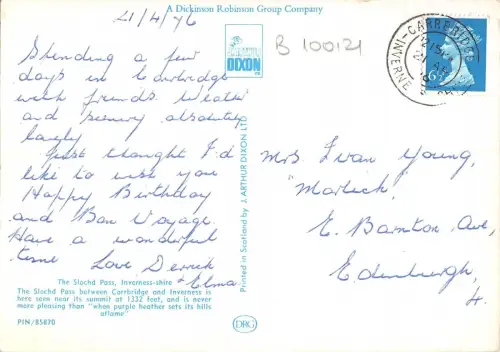 A Dickinson Robinson Group Company
21/4/76
B 100121
DIXON
CARRBRIDGE
INVERNE
Spending a few
days in Carrbridge
with friends. Weather
and scenery absolutely
lovely
Just thought I'd
like to wish you
Happy Birthday
and Bon Voyage.
Have a wonderful
time Love Derrick
& Elma.
Printed in Scotland by J. ARTHUR DIXON LTD
Mrs Ivan Young,
E. Barnton Ave,
Edinburgh,
4.
The Slochd Pass, Inverness-shire
The Slochd Pass between Carrbridge and Inverness is
here seen near its summit at 1332 feet, and is never
more pleasing than "when purple heather sets its hills
aflame"
PIN/85870
DRG